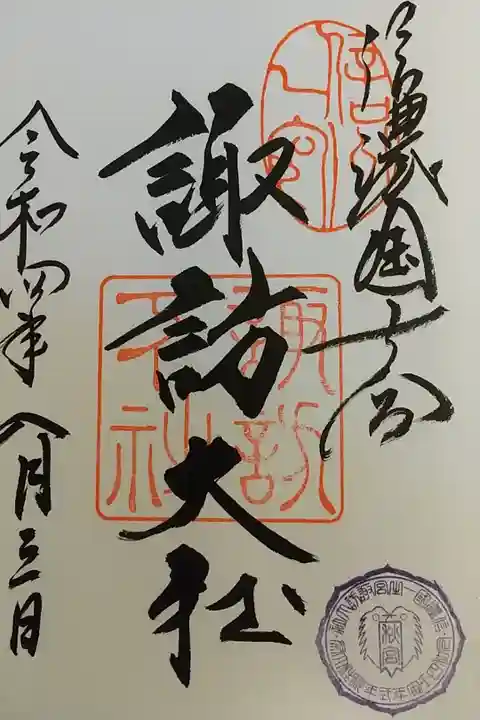 信濃國一宮
諏訪大社
令和四年八月三日
諏訪
下社
秋宮